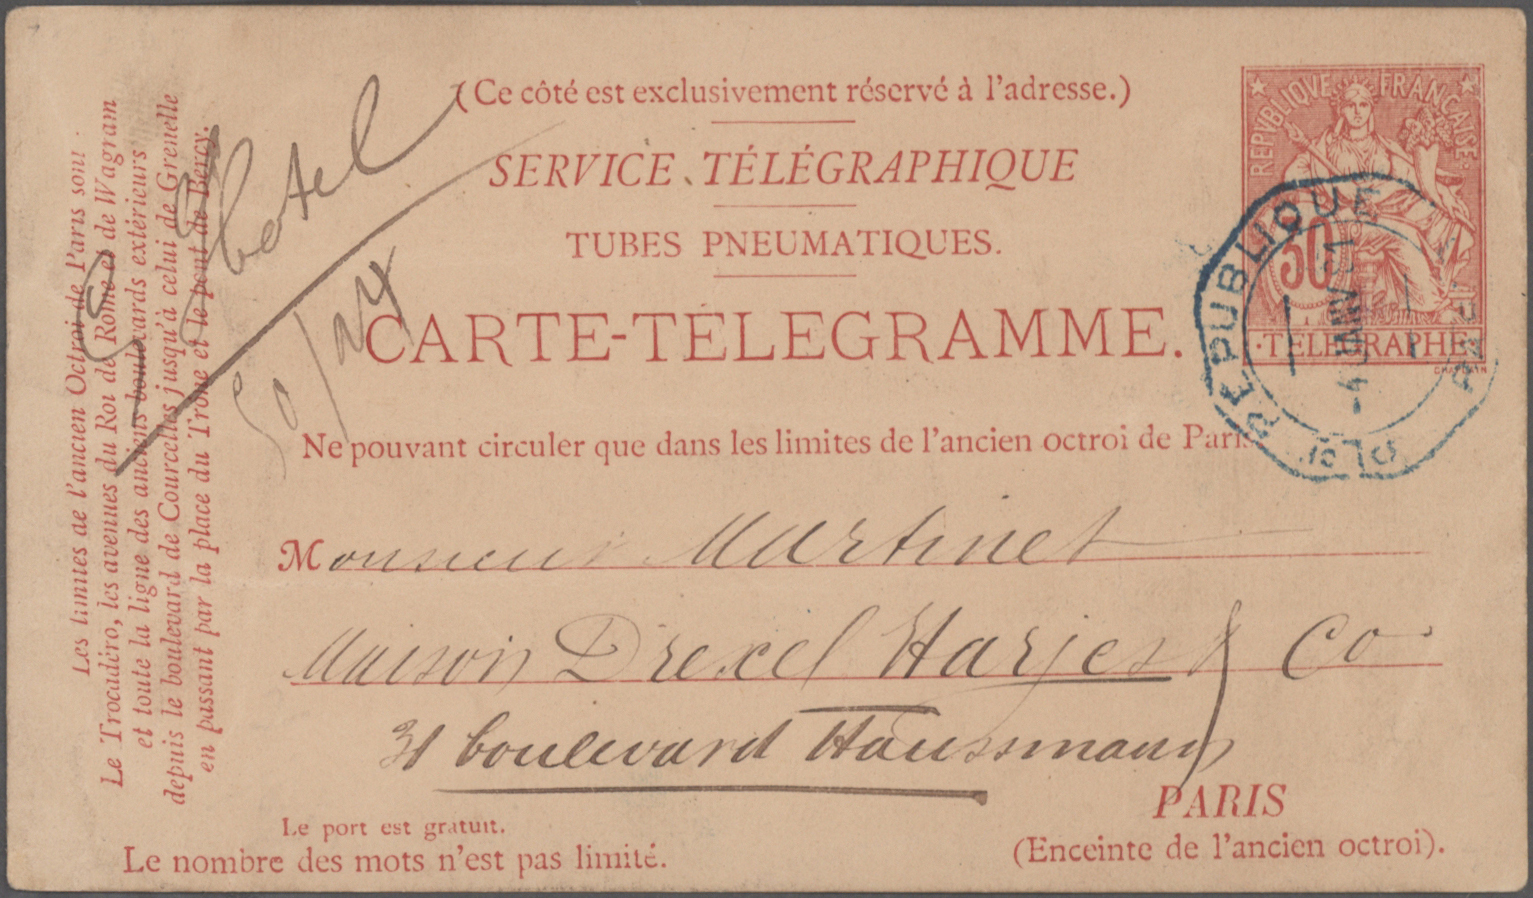 (Ce côté est exclusivement réservé à l'adresse.)
SERVICE TÉLÉGRAPHIQUE
TUBES PNEUMATIQUES.
CARTE-TÉLÉGRAMME.
Ne pouvant circuler que dans les limites de l'ancien octroi de Paris
REPUBLIQUE FRANÇAISE
50
TÉLÉGRAPHE
CHAPLAIN
PL. DE LA REPUBLIQUE
PARIS
JANV 81
Les limites de l'ancien Octroi de Paris sont:
Le Trocadéro, les avenues du Roi de Rome et de Wagram
et toute la ligne des anciens boulevards extérieurs
depuis le boulevard de Courcelles jusqu'à celui de Grenelle
en passant par la place du Trône et le pont de Bercy.
Monsieur Martinet
Maison Drexel Harjes & Co
31 boulevard Haussmann
PARIS
(Enceinte de l'ancien octroi).
Le port est gratuit.
Le nombre des mots n'est pas limité.